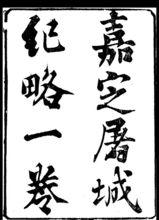 嘉定屠城
纪略一卷